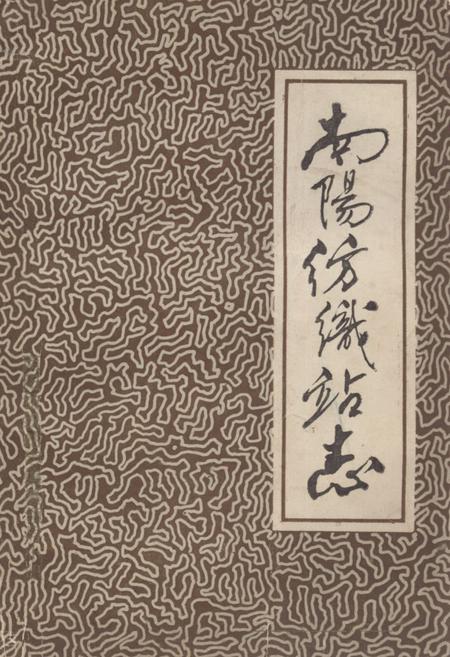 南陽纺織站志